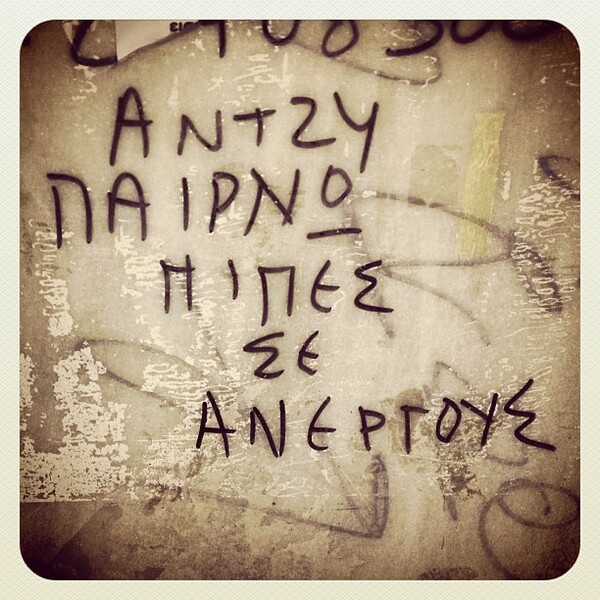 ΑΝΤΖΥ
ΠΑΙΡΝΩ
ΠΙΠΕΣ
ΣΕ
ΑΝΕΡΓΟΥΣ